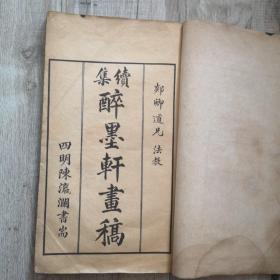 郯卿道兄 法教
續集
醉墨軒畫稿
四明陳瀛瀾書耑